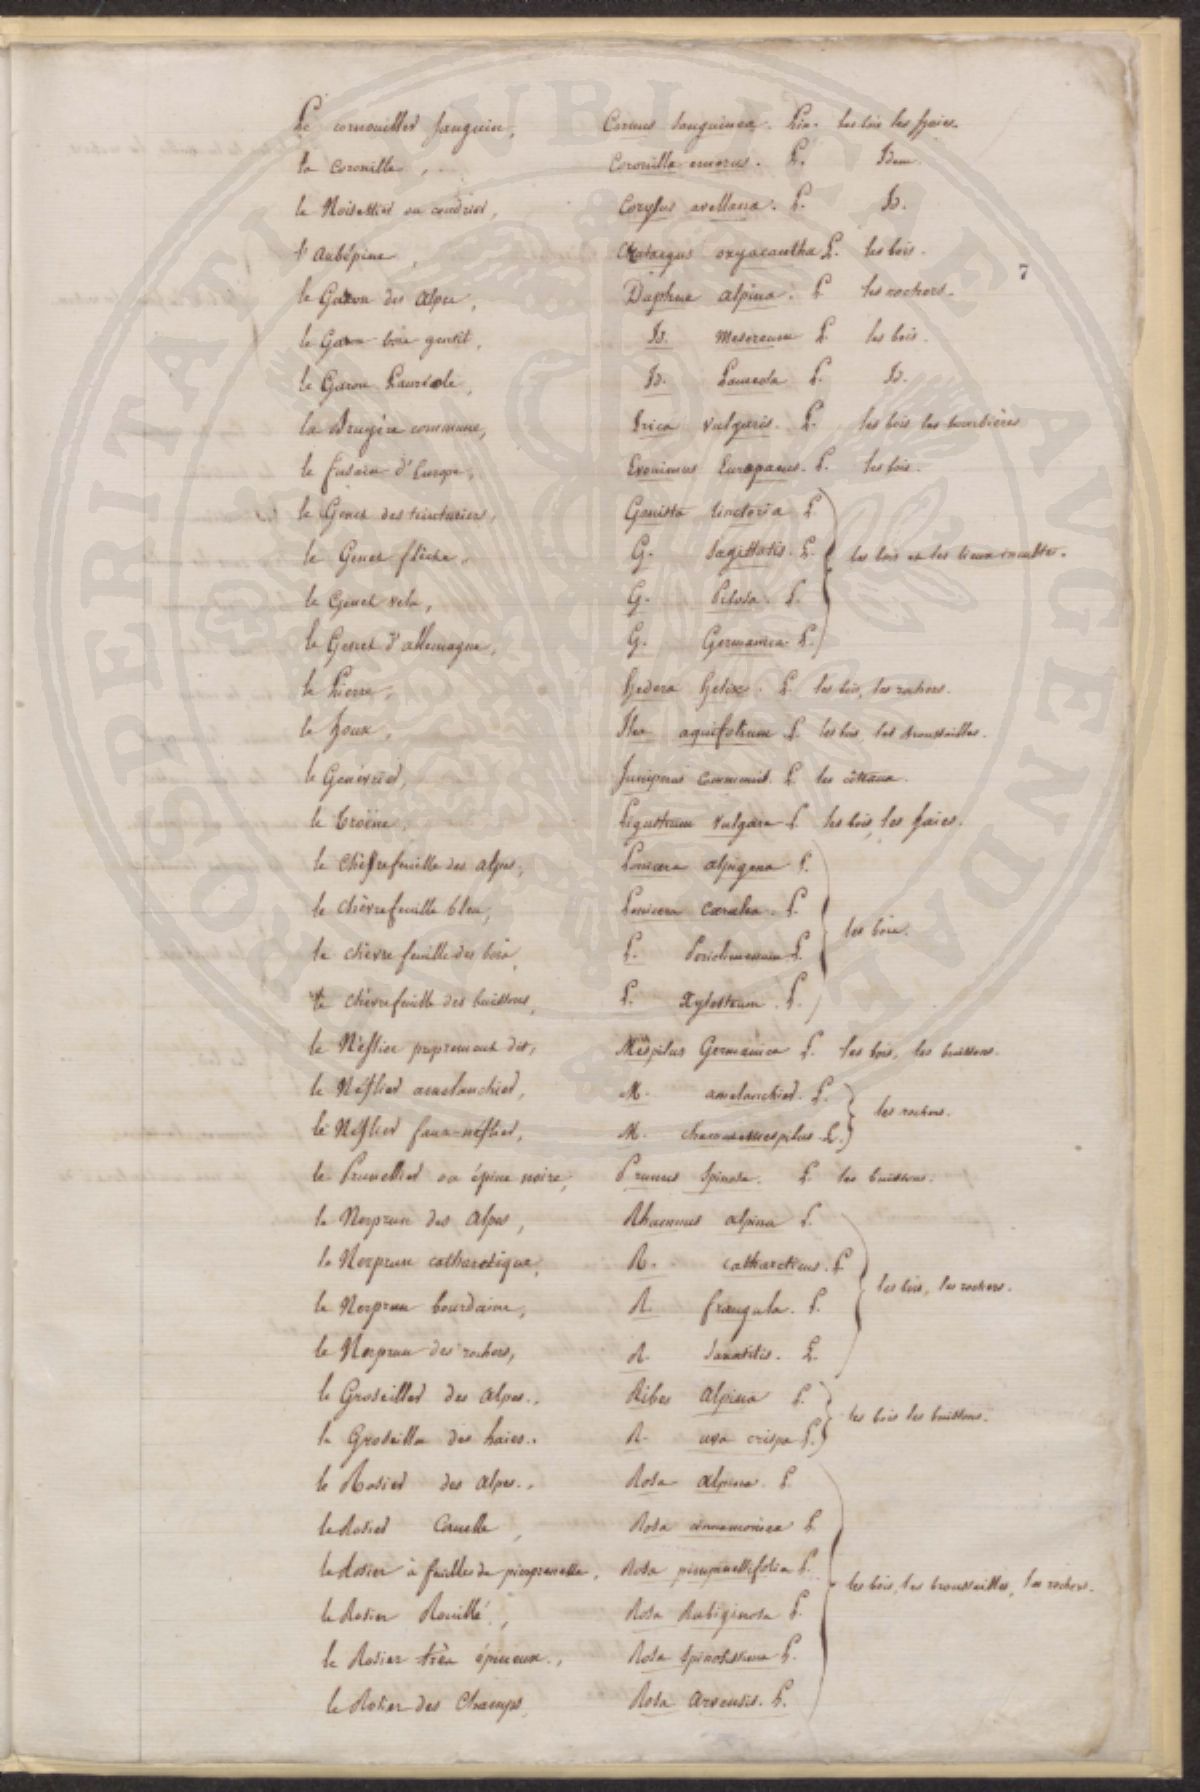 Le cornouiller sanguin, Cornus sanguinea. Lin. les bois les haies.
la coronille, Coronilla emerus. L. Idem.
le Noisettier ou coudrier, Corylus avellana. L. Id.
l'aubépine, Crataegus oxyacantha L. les bois.
7
le Garou des alpes, Daphne alpina. L. les rochers.
le Garou bois gentil, Id. Mesereum L. les bois.
le Garou Lauréole, Id. Laureola L. Id.
la Bruyère commune, Erica vulgaris. L. les bois les bourbières
le fusain d'Europe, Evonimus Europaeus. L. les bois.
le Genet des teinturiers, Genista tinctoria L.
le Genet flèche, G. Sagittalis. L. les bois et les lieux incultes.
le Genet velu, G. Pilosa. L.
le Genet d'allemagne, G. Germanica. L.
le Lierre, hedera helix. L. les bois, les rochers.
le houx, Ilex aquifolium L. les bois, les broussailles.
le Genévrier, Juniperus communis. L. les côteaux.
le troëne, Ligustrum vulgare L. les bois, les haies.
le chèvrefeuille des alpes, Lonicera alpigena L.
le chèvrefeuille bleu, Lonicera Cœrulea. L.
le chèvrefeuille des bois, L. Periclimenum L. les bois.
le chèvrefeuille des buissons, L. Xylosteum. L.
le Néflier proprement dit, Mespilus Germanica L. les bois, les buissons.
le Néflier amelanchier, M. amelanchier. L.
le Néflier faux-néflier, M. chamaemespilus L. les rochers.
le Prunellier ou épine noire, Prunus Spinosa. L. les buissons.
le Nerprun des alpes, Rhamnus alpina L.
le Nerprun cathartique, R. catharticus. L.
le Nerprun bourdaine, R. frangula. L. les bois, les rochers.
le Nerprun des rochers, R. Saxatilis. L.
le Groseiller des alpes, Ribes alpina L.
le Groseiller des haies, R. uva crispa L. les bois les buissons.
le Rosier des alpes, Rosa alpina. L.
le Rosier Canelle, Rosa cinnamomea L.
le Rosier à feuilles de pimprenelle, Rosa pimpinellifolia L. les bois, les broussailles, les rochers.
le Rosier Rouillé, Rosa Rubiginosa L.
le Rosier très épineux, Rosa Spinosissima L.
le Rosier des Champs, Rosa arvensis. L.
PROSPERITATI PUBLICAE AUGENDAE